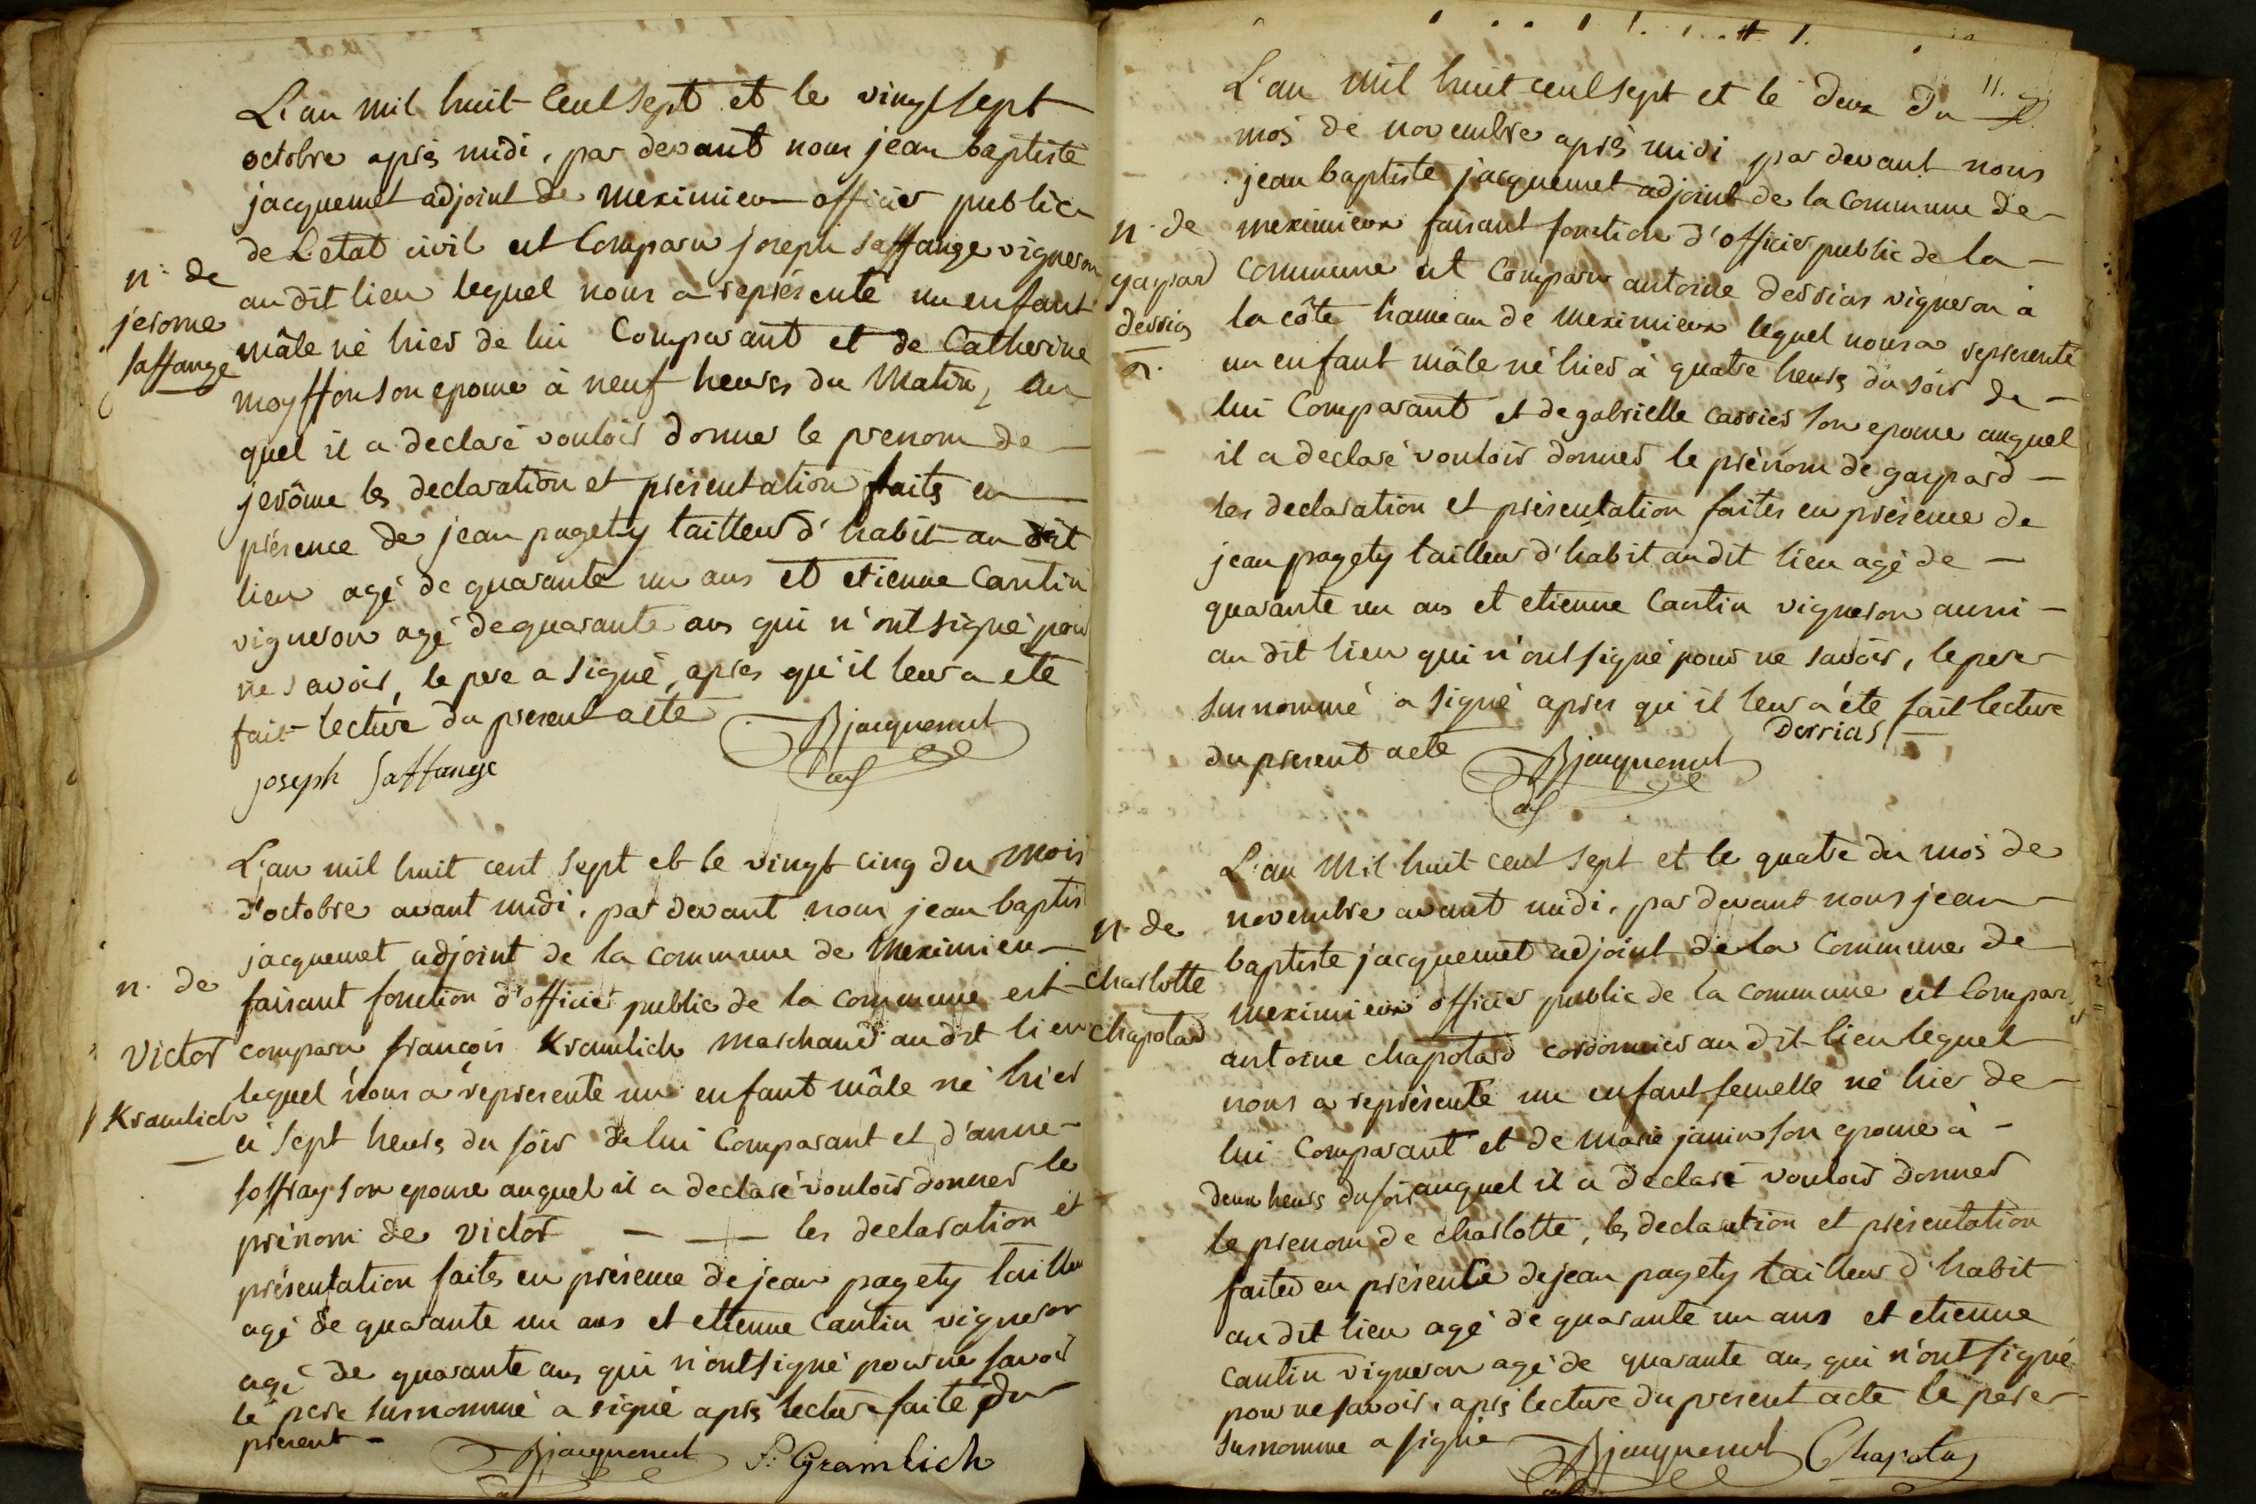 L'an mil huit cent sept et le vingt sept
octobre après midi, par devant nous jean baptiste
jacquemet adjoint de meximieux officier public
de L'etat civil est Comparu joseph saffange vigneron
n. de
jerome
saffange
au dit lieu lequel nous a représenté un enfant
mâle né hier de lui Comparant et de Catherine
moyffon son epouse à neuf heures du Matin, au
quel il a declaré vouloir donner le prenom de
jerôme les declaration et présentation faites en
présence de jean pagety tailleur d'habit au dit
lieu agé de quarante un ans et etienne Cantin
vigneron agé de quarante ans qui n'ont signé pour
ne savoir, le pere a signé, apres qu'il leur a eté
fait lecture du present acte
Bjacquemet
adj
joseph Saffange
L'an mil huit cent sept et le vingt cinq du mois
d'octobre avant midi, par devant nous jean baptis
jacquemet adjoint de la commune de Meximieu
n. de
Victor
Kramlich
faisant fonction d'officier public de la commune est
comparu françois Kramlich marchand au dit lieu
lequel nous a représenté un enfant mâle né hier
à sept heures du soir de lui Comparant et d'anne
soffray son epouse auquel il a declaré vouloir donner le
prénom de victor les declaration et
présentation faites en présence de jean pagety taille
agé de quarante un ans et etienne Cantin vigneron
agé de quarante ans qui n'ont signé pour ne savoir
le pere surnommé a signé après lecture faite du
present
Bjacquemet F. Gramlich
11.
L'an mil huit cent sept et le deux du
mois de novembre après midi par devant nous
jean baptiste jacquemet adjoint de la Commune de
n. de
gaspard
derrias
meximieux faisant fonction d'officier public de la
commune est Comparu antoine derrias vigneron à
la côte hameau de meximieux lequel nous a représenté
un enfant mâle né hier à quatre heures du soir de
lui Comparant et de gabrielle carrier son epouse auquel
il a declaré vouloir donner le prénom de gaspard
les declaration et présentation faites en présence de
jean pagety tailleur d'habit au dit lieu agé de
quarante un ans et etienne Cantin vigneron aussi
au dit lieu qui n'ont signé pour ne savoir, le pere
surnommé a signé apres qu'il leur a été fait lecture
du present acte
Derrias
Bjacquemet
adj
L'an Mil huit cent sept et le quatre du mois de
novembre avant midi, par devant nous jean
n. de
Charlotte
Chapotard
baptiste jacquemet adjoint de la Commune de
meximieux officier public de la commune est Comparu
antoine chapotard cordonnier au dit lieu lequel
nous a représenté un enfant femelle né hier de
lui Comparant et de marie janin son epouse à
deux heures du soir auquel il a declaré vouloir donner
le prenom de charlotte, les declaration et présentation
faites en présence de jean pagety tailleur d'habit
au dit lieu agé de quarante un ans et etienne
Cantin vigneron agé de quarante ans qui n'ont signé
pour ne savoir, après lecture du present acte le pere
surnommé a signé
Bjacquemet Chapota